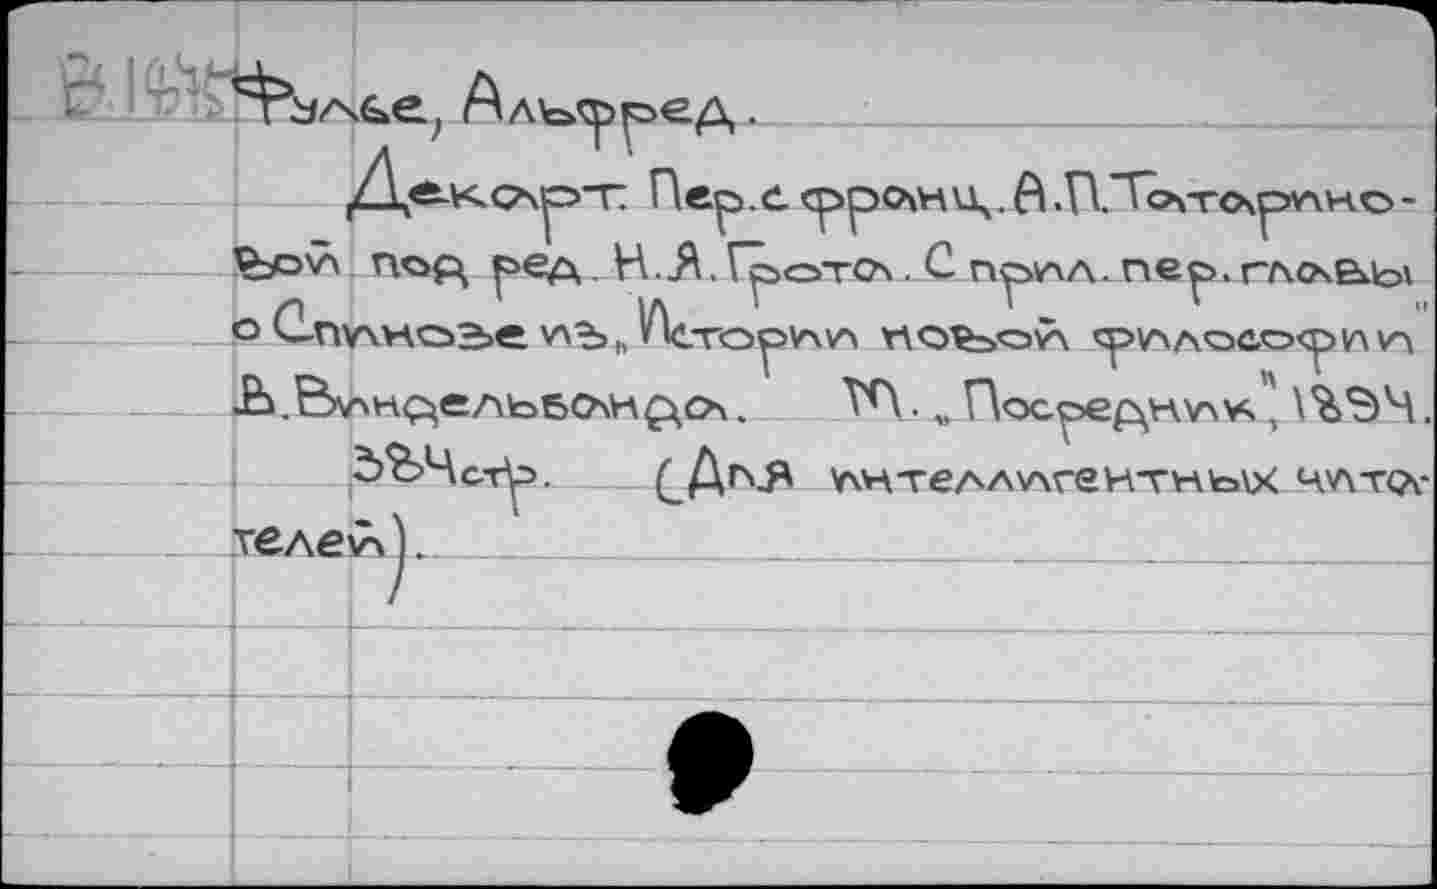 Фулье, Альфред.
Декарт. Пер.с франц. А.П.Татарино-
вой под ред. Н.Я.Грота. С прил. пер. главы
о Спинозе из „Истории новой философии"
В.Виндельбанда. М. „Посредник", 1894.
(Для интеллигентных чита-
телей).